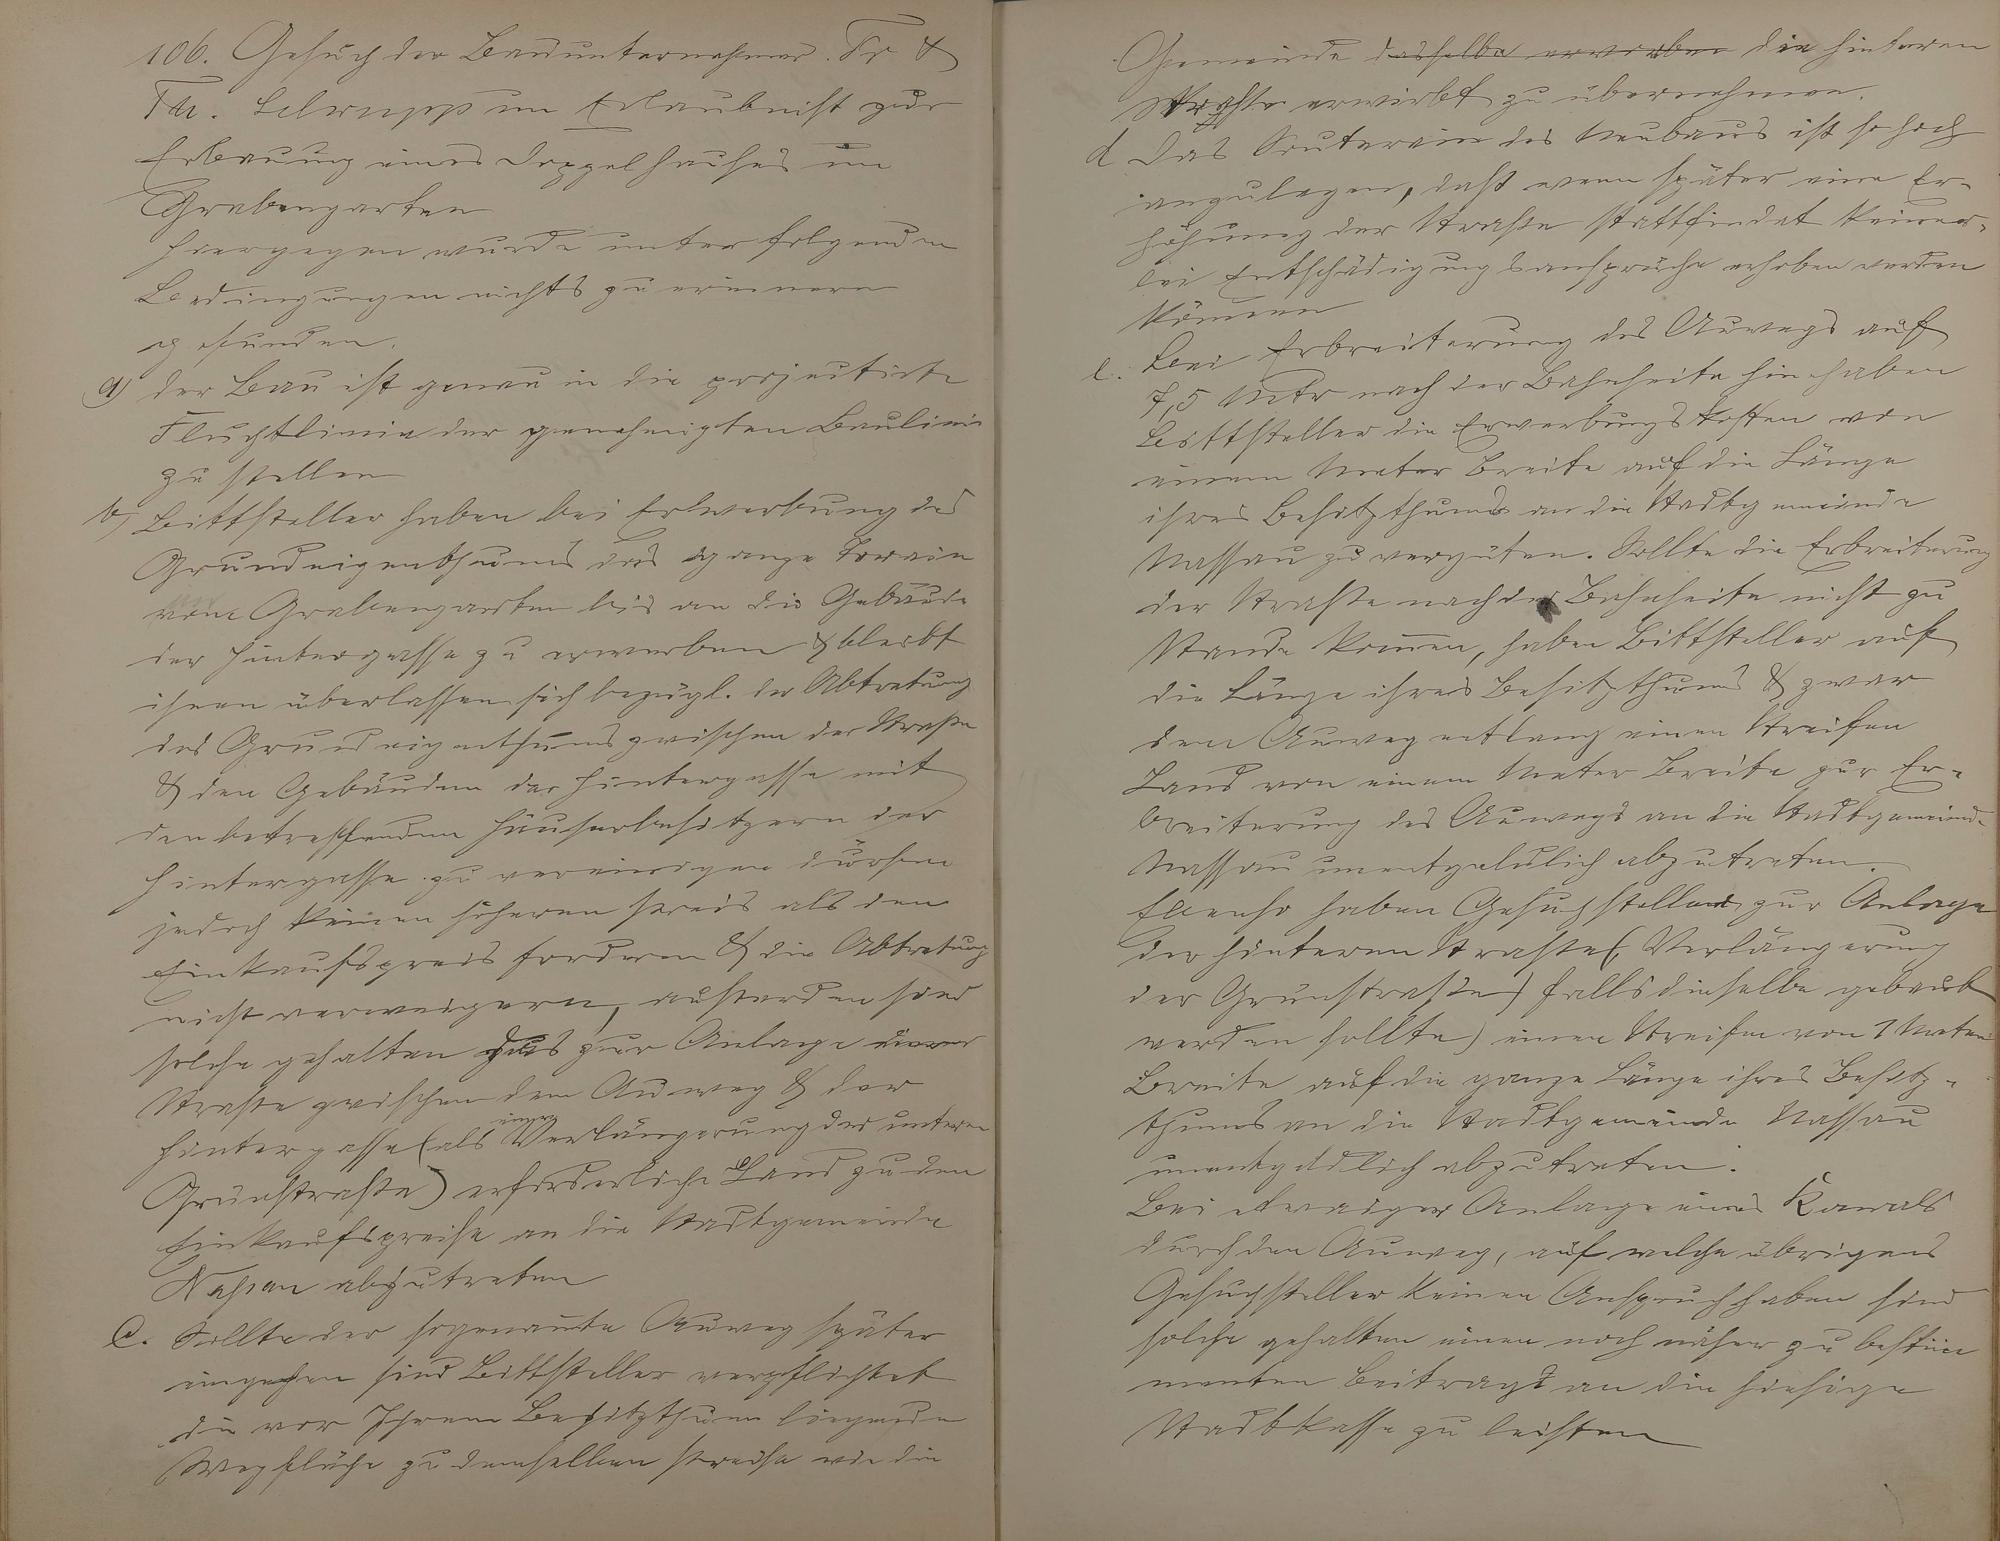 106. Gesuch der Bauunternehmer. Fr &
Th. Schrupp um Erlaubnißt zur
Erbauung eines Doppelhauses im
Grabengarten
Hiergegen wurde unter folgenden
Bedingungen nichts zu erinnern
gefunden.
a) der Bau ist genau in die projectirte
Fluchtlinie der genehmigten Baulinie
zu stellen
b) Bittsteller haben bei Erwerbung des
Grundeigenthums das ganze Terain
vom Grabengarten bis an die Gebäude
der Hintergasse zu erwerben & bleibt
ihnen überlassen sich bezügl. der Abtretung
des Grundeigenthums zwischen der Straße
& den Gebäuden der Hintergasse mit
den betreffenden Häuserbesitzern der
Hintergasse zu vereinigen dürfen
jedoch keinen höheren Preis als den
Einkaufspreis fordern & die Abtretung
nicht verweigern, außerdem sind
solche gehalten das zur Anlage einer
Straße zwischen dem Auweg & der
Hintergasse (als einer Verlängerung der unteren
Grünstraße) erforderliche Land zu den
Einkaufspreise an die Stadtgemeinde
Nassau abzutreten
c. Sollte der sogenannte Auweg später
eingehen sind Bittsteller verpflichtet
die vor Ihrem Besitzthum liegende
Wegfläche zu demselben Preise wie die
Gemeinde dasselbe erworben die hinteren
Straße erwirbt zu übernehmen.
d Das Souterain des Neubaus ist so hoch
anzulegen, daß wenn später eine Er-
höhung der Straße stattfindet keiner-
lei Entschädigungsansprüche erhoben werden
können
e. Bei Erbreiterung des Auwegs auf
7,5 Mtr nach der Bahnseite hin haben
Bittsteller die Erwerbungskosten von
einem Meter Breite auf die Länge
ihres Besitzthums an die Stadtgemeinde
Nassau zu vergüten. Sollte die Erbreiterung
der Straße nach der Bahnseite nicht zu
Stande kommen, haben Bittsteller auf
die Länge ihres Besitzthums & zwar
den Auweg entlang einen Streifen
Land von einem Meter Breite zur Er-
breiterung des Auwegs an die Stadtgemeinde
Nassau unentgeldlich abzutreten.
Ebenso haben Gesuchsteller zur Anlage
der hinteren Straße (Verlängerung
der Grünstraße) falls dieselbe gebaut
werden sollte) einen Streifen von 1 Meter
Breite auf die ganze Länge ihres Besitz-
thums an die Stadtgemeinde Nassau
unentgeldlich abzutreten.
Bei etwaiger Anlage eines Kanals
durch den Auweg, auf welche übrigens
Gesuchsteller keinen Anspruch haben sind
solche gehalten einen noch näher zu bestim
menten Beitrag an die hiesige
Stadtkasse zu leisten